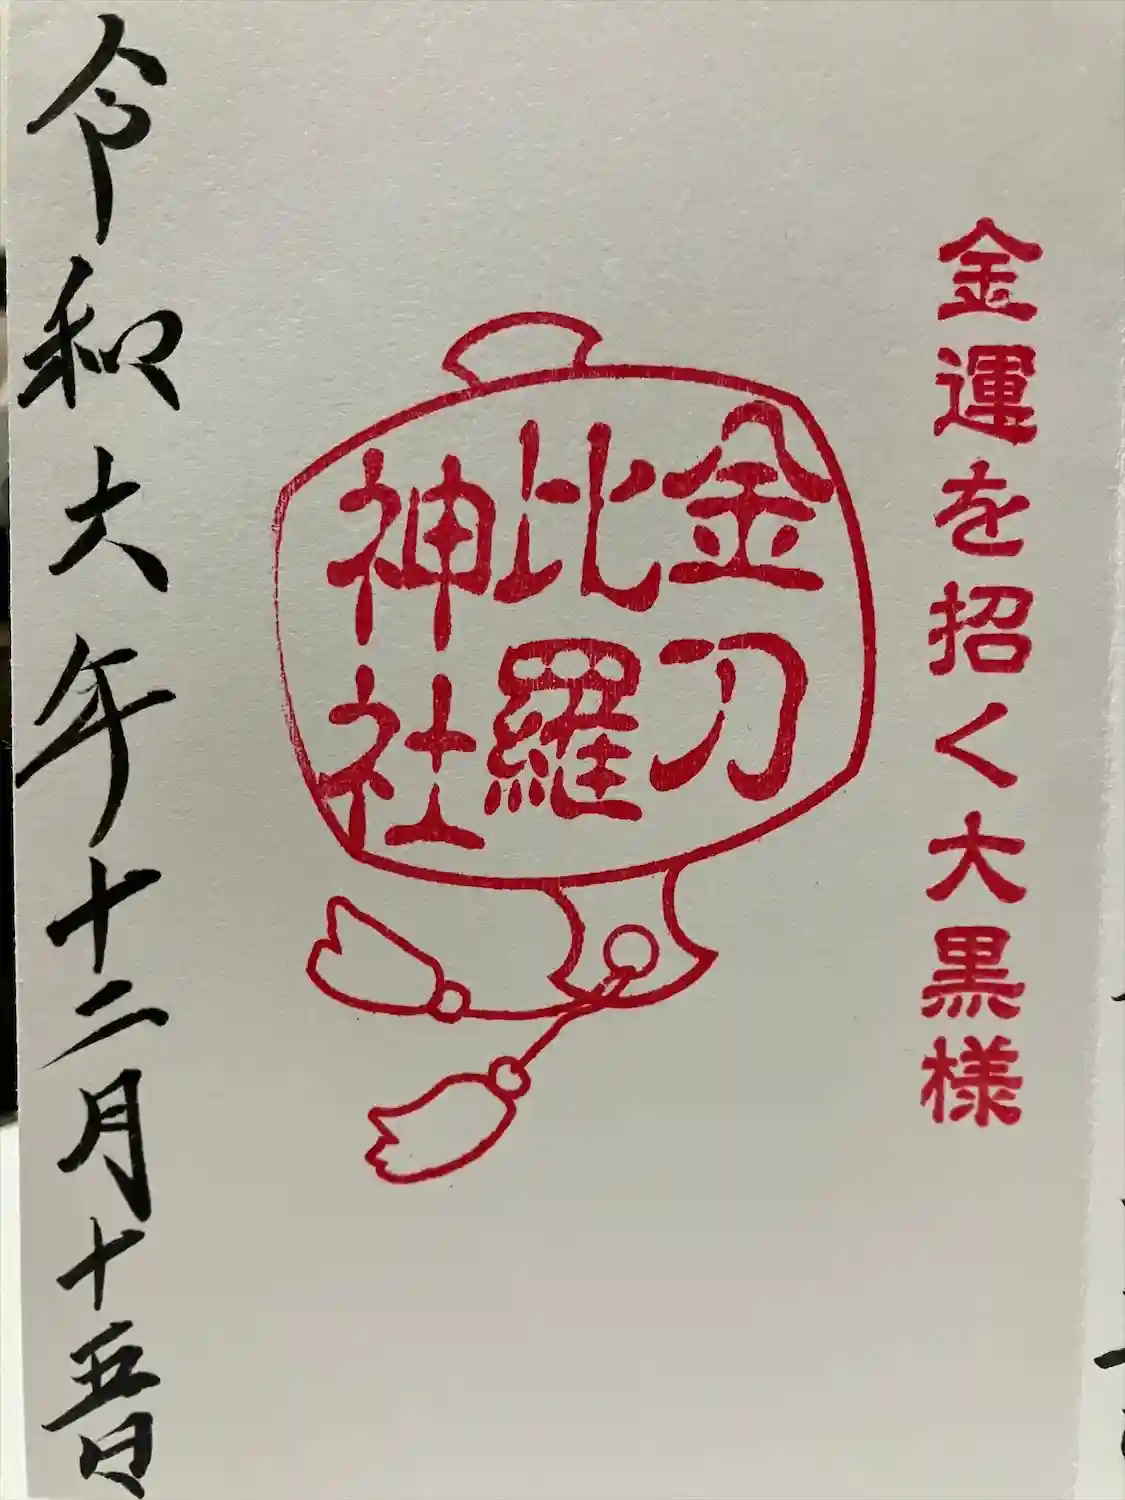 金運を招く大黒様
金刀
比羅
神社
令和六年十二月十五日